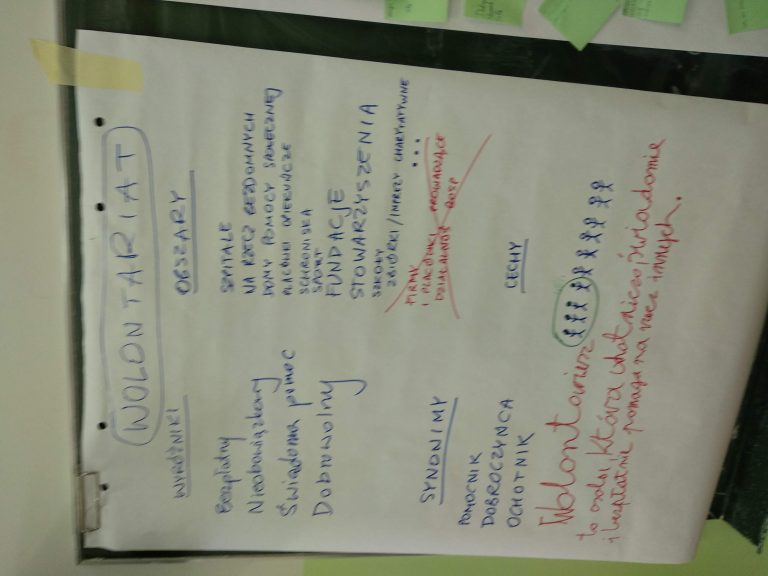 WOLONTARIAT
WYRÓŻNIKI
Bezpłatny
Nieobowiązkowy
Świadoma pomoc
Dobrowolny
OBSZARY
SZPITALE
NA RZECZ BEZDOMNYCH
DOMY POMOCY SPOŁECZNEJ
PLACÓWKI OPIEKUŃCZE
SCHRONISKA
SPORT
FUNDACJE
STOWARZYSZENIA
SZKOŁY
ZBIÓRKI/IMPREZY CHARYTATYWNE
...
FIRMY
I PLACÓWKI PROWADZĄCE
DZIAŁALNOŚĆ GOSP
SYNONIMY
POMOCNIK
DOBROCZYŃCA
OCHOTNIK
CECHY
Wolontariusz
to osoba, która ochotniczo świadomie
i bezpłatnie pomaga na rzecz innych.